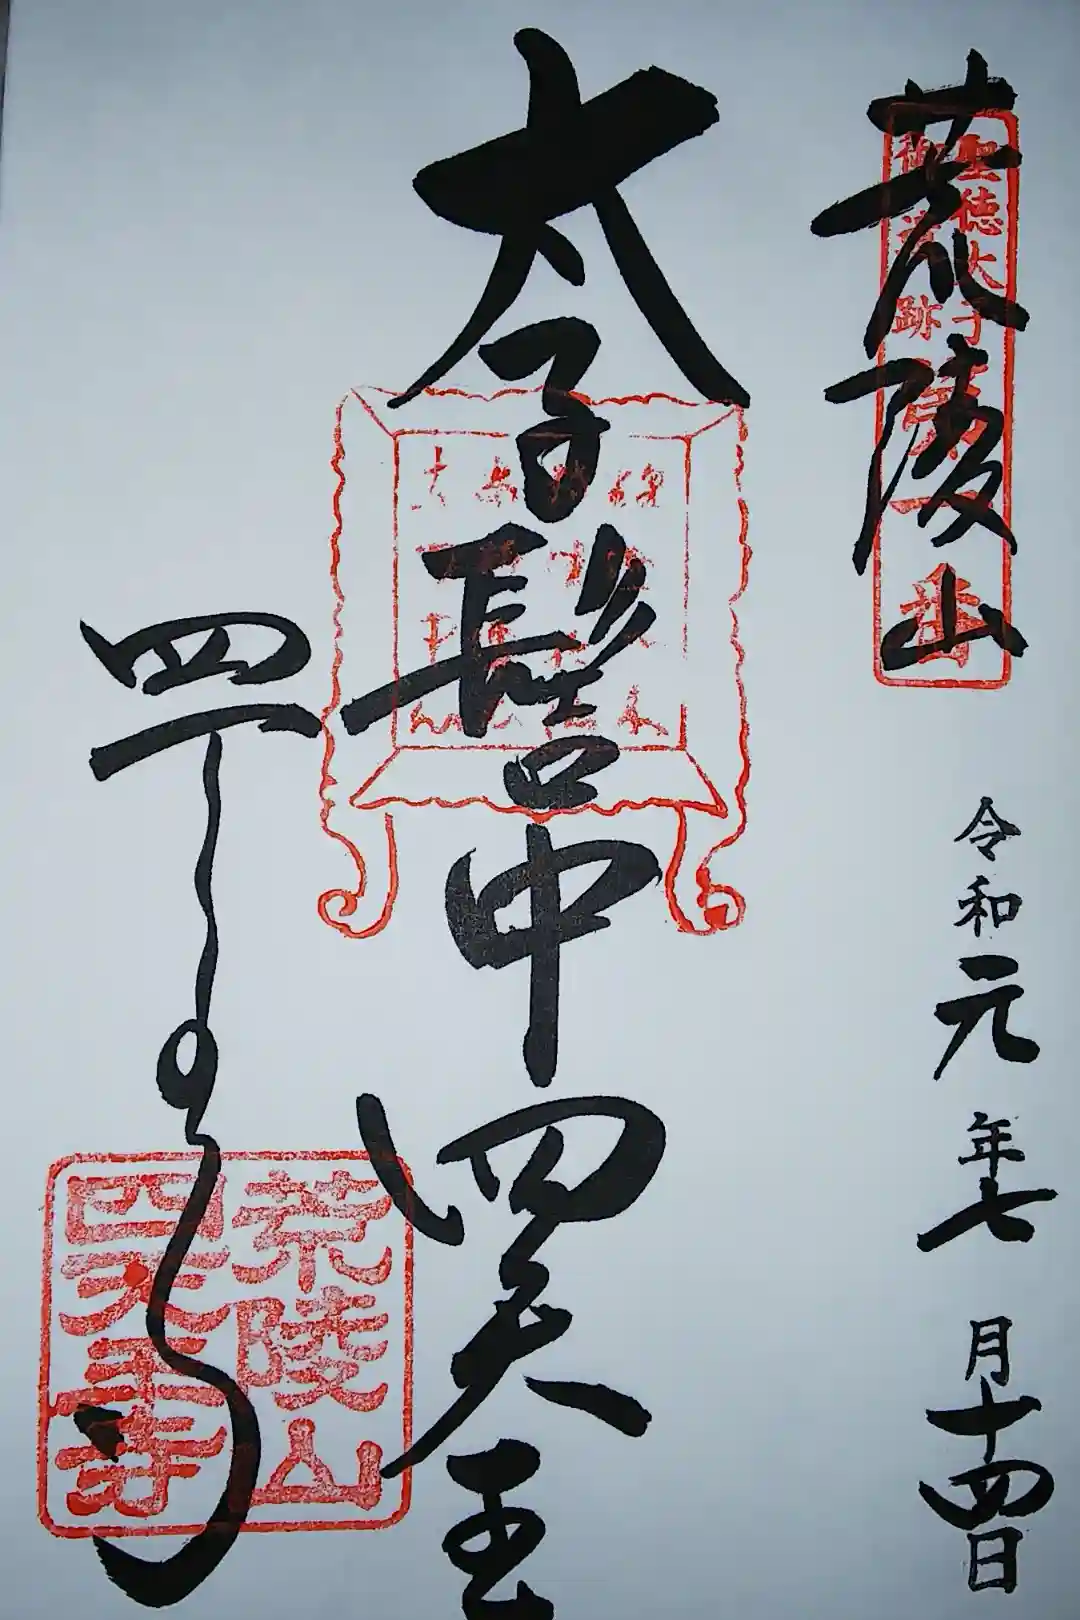 荒陵山
聖徳太子
御遺跡
第一番
令和元年七月十四日
太子髻中四天王
四天王寺
荒陵山
四天王寺